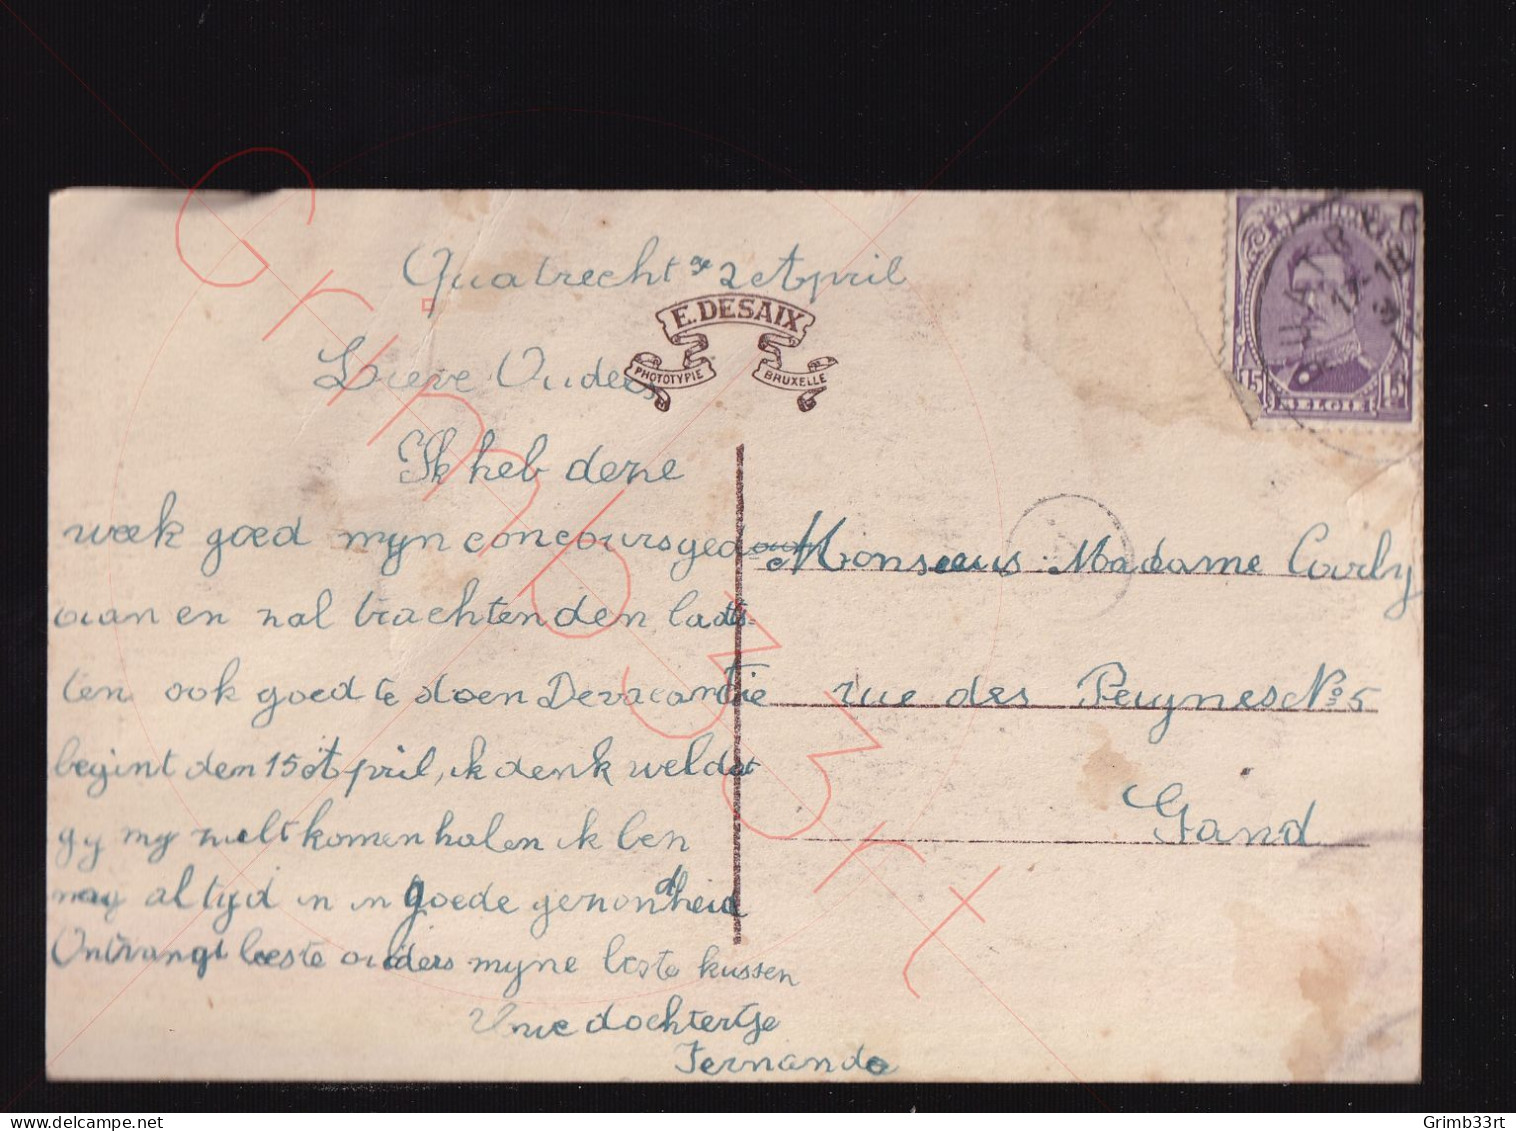 Quatrecht 2 April
E. DESAIX
PHOTOTYPIE
BRUXELLE
Lieve Ouders
Ik heb deze
week goed myn concours ged
aan en zal trachten den laats-
ten ook goed te doen De vacantie
begint den 15 April, ik denk wel dat
gy my zult komen halen ik ben
nog altyd in in goede gezondheid
Ontvangt beste ouders myne beste kussen
Uwe dochtertje
Fernande
Monsieur Madame
rue des Peignes No 5
Gand
15 BELGIE 15
Grimb33rt
Grimb33rt